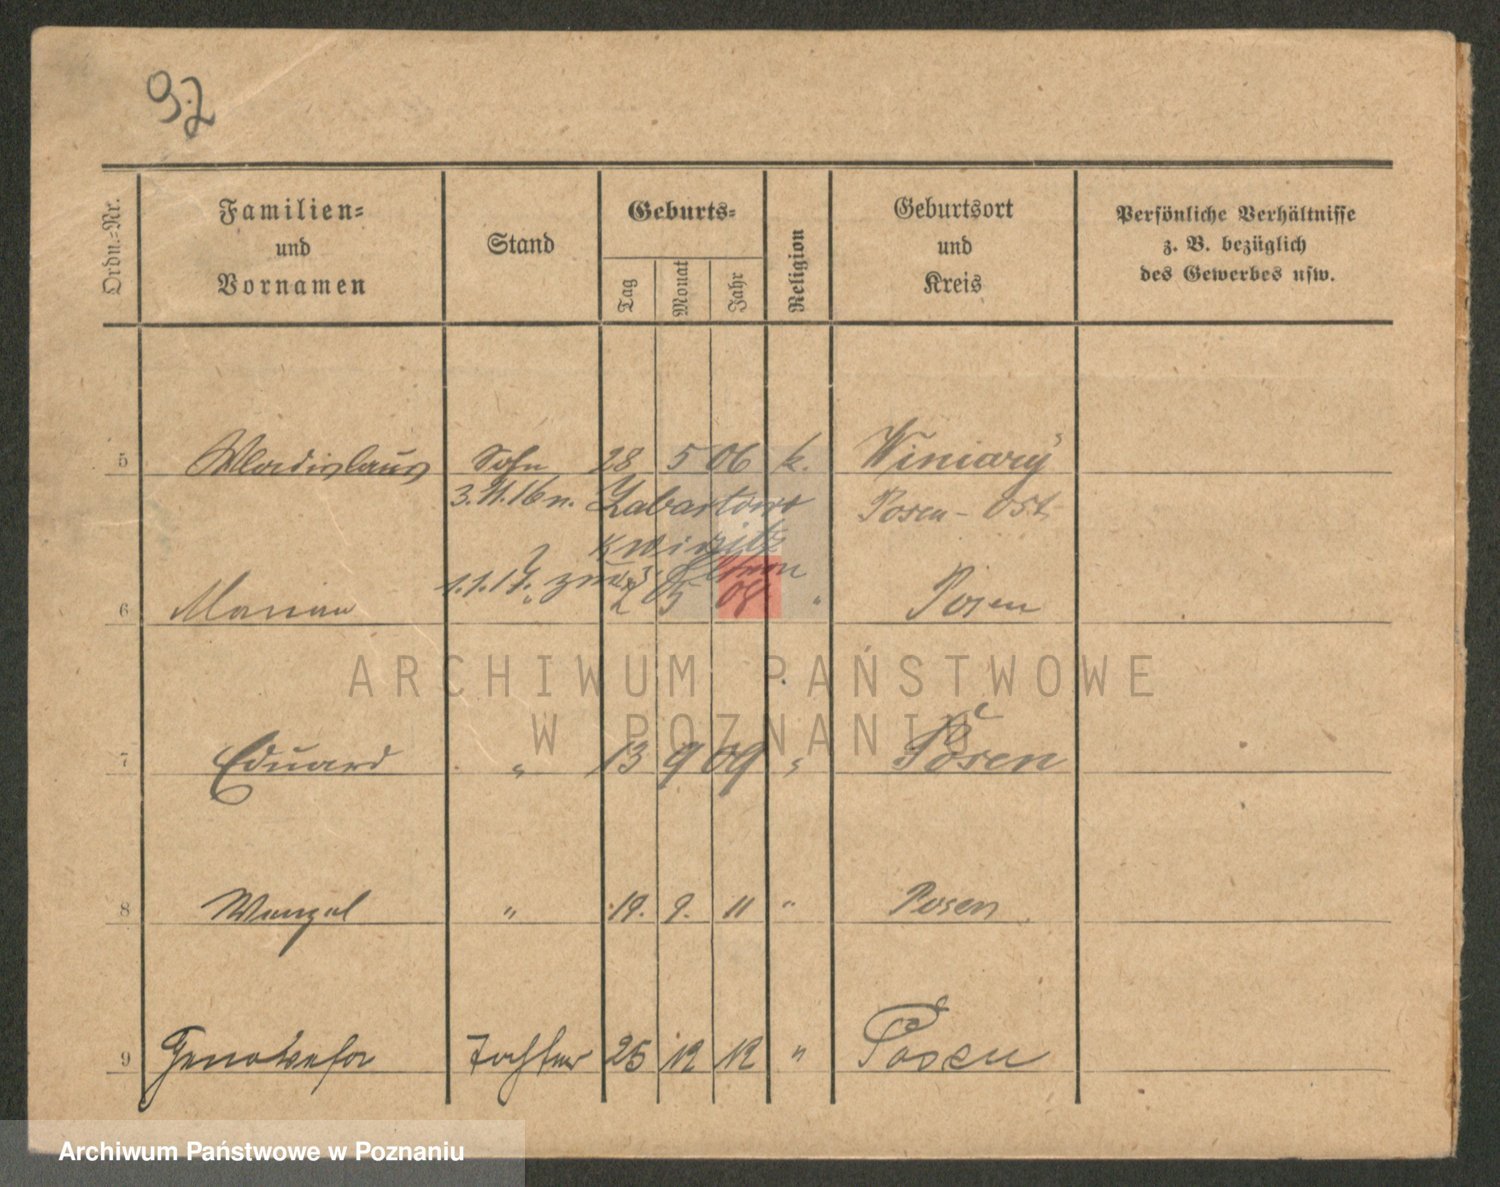 97
Ordn.=Nr.
Familien=
und
Vornamen
Stand
Geburts=
Tag
Monat
Jahr
Religion
Geburtsort
und
Kreis
Persönliche Verhältnisse
z. B. bezüglich
des Gewerbes usw.
5 Wladislaus Sohn 28 5 06 k. Winiary
3.11.16 n. Zabartowo Posen - Ost
1.1.17. zur.
6 Marian " 2 5 08 " Posen
ARCHIWUM PAŃSTWOWE
W POZNANIU
7 Eduard " 13 9 09 " Posen
8 Wenzel " 19. 9. 11 " Posen
9 Genowefa Tochter 25 12 12 " Posen
Archiwum Państwowe w Poznaniu